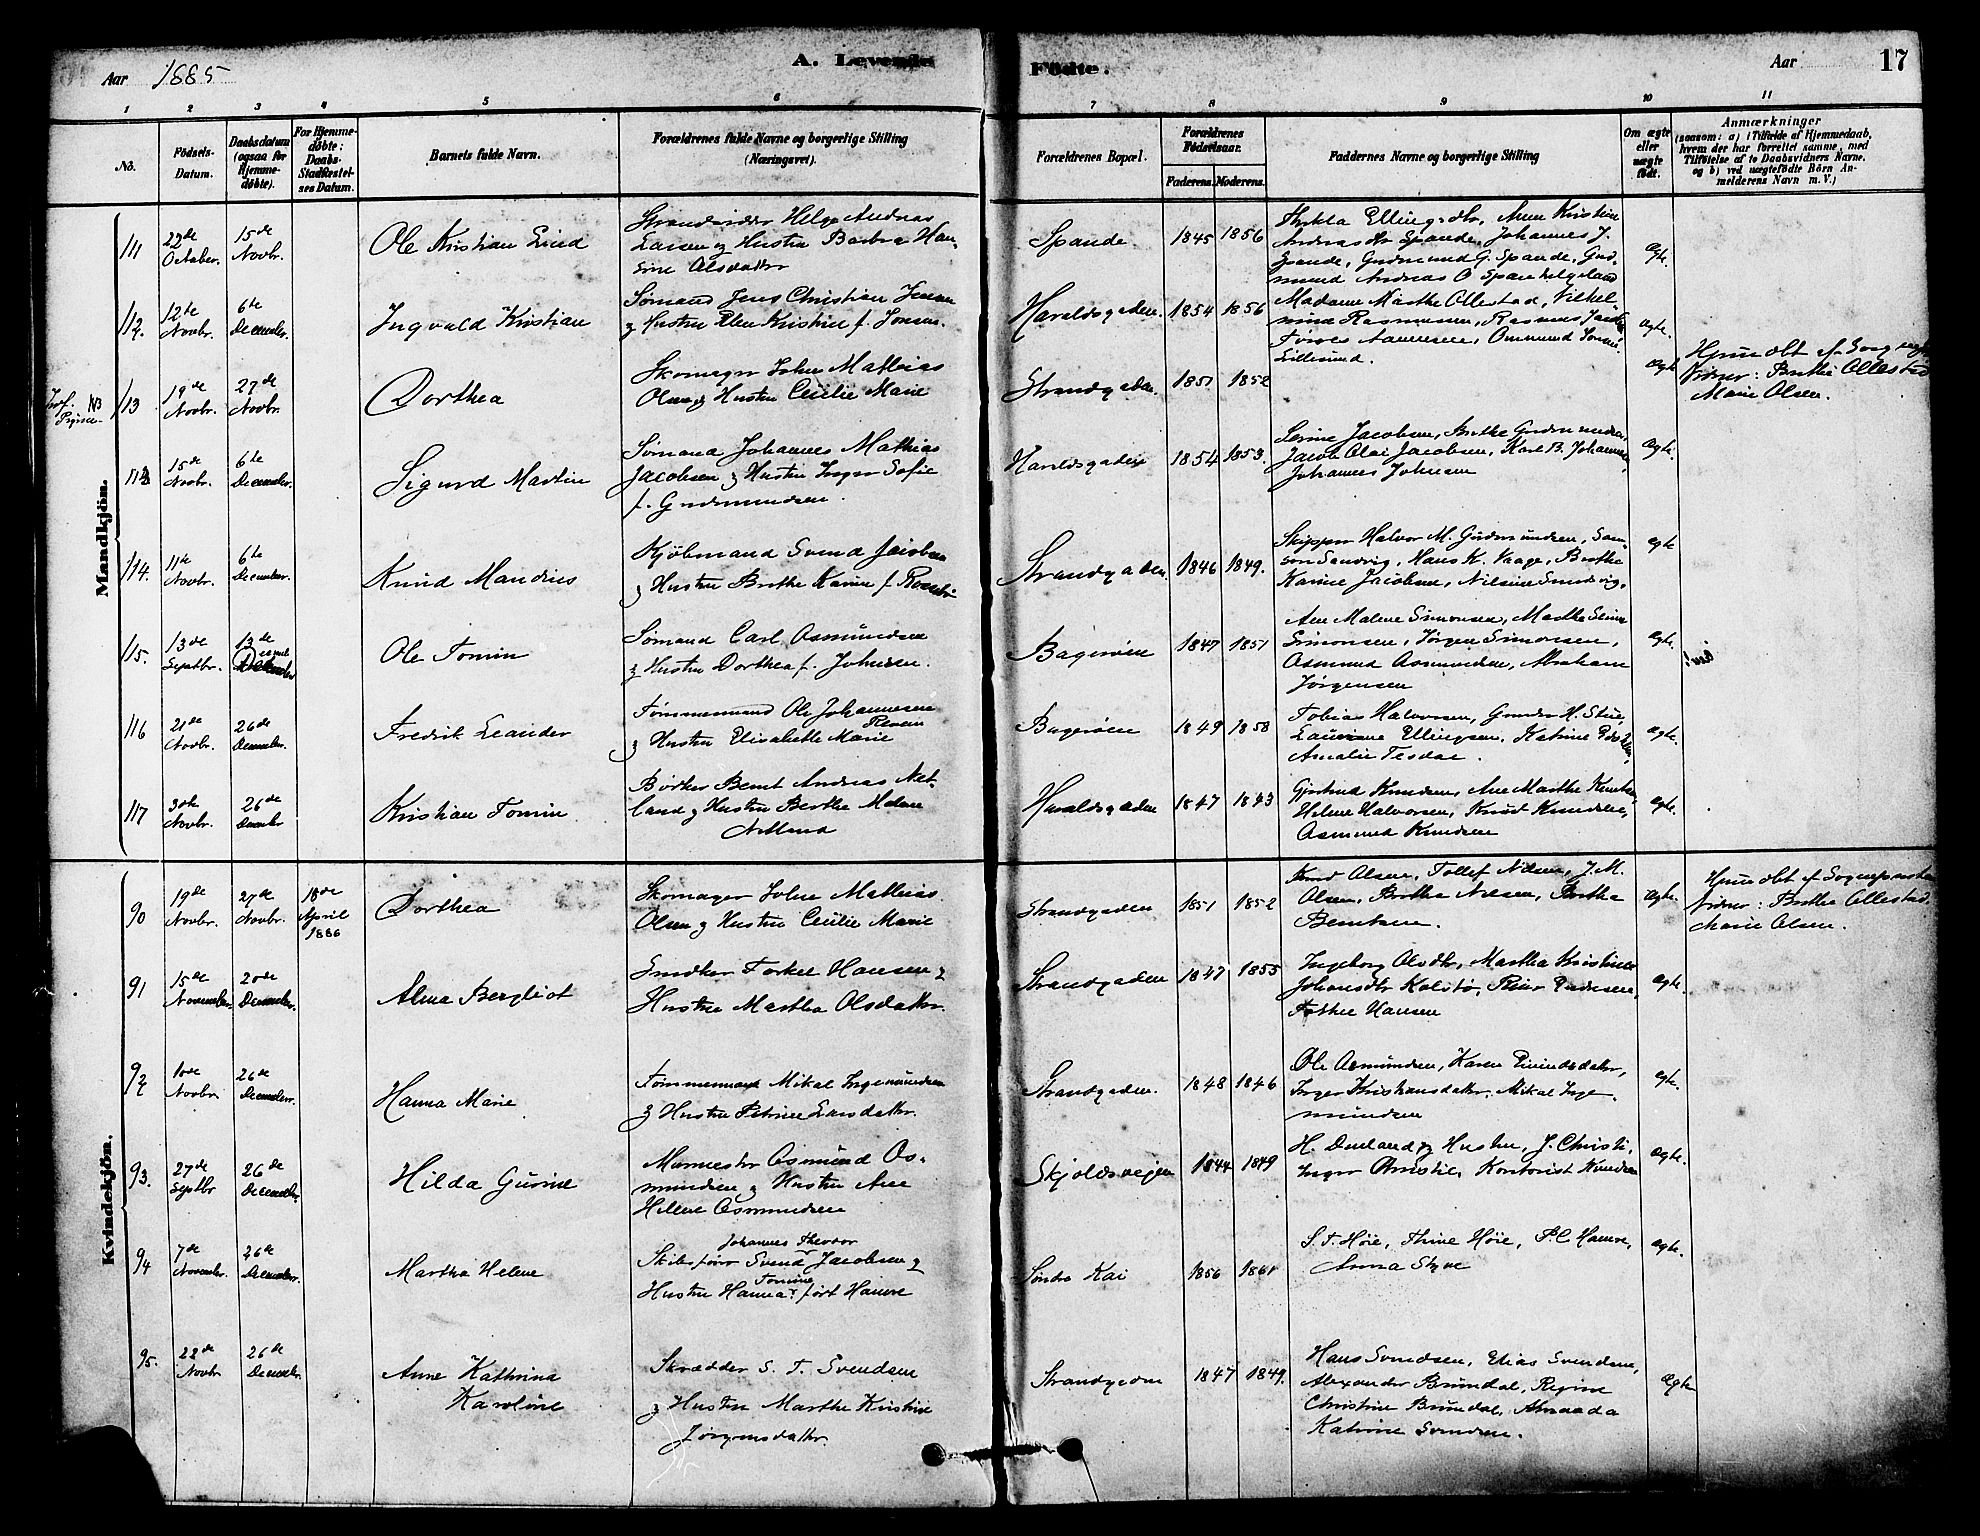 Aar 1885
A. Levende
Fødte.
Aar
17
1 2 3 4 5 6 7 8 9 10 11
No.
Fødsels-Datum.
Daabsdatum (ogsaa for Hjemme-døbte).
For Hjemme-døbte: Daabs-Stadfæstel-ses Datum.
Barnets fulde Navn.
Forældrenes fulde Navne og borgerlige Stilling (Næringsvei).
Forældrenes Bopæl.
Forældrenes Fødselsaar.
Faderens. Moderens.
Faddernes Navne og borgerlige Stilling
Om ægte eller uægte født.
Anmærkninger
(saasom: a) i Tilfælde af Hjemmedaab, hvem der har forrettet samme, med Tilføielse af to Daabsvidners Navne, og b) ved uægtefødte Børn An-melderens Navn m. V.)
Mandkjön.
111 22de October. 15de Novbr.
Ole Kristian
Larsen og Hustru Barbra Han-
sine Olsdatter
Spande 1845 1856
Andreasdtr Spande, Johannes J.
Spande, Gudmund G. Spande, Gud-
mund Andreas O Spande
Ægte.
112. 12te Novbr. 6te December.
Ingvald Kristian
Sømand Jens Christian Jensen
Haraldsgaden. 1854 1856
Madame Marthe Ollestad, Vilhel-
mine Rasmussen, Rasmus
Ægte.
113 19de Novbr. 27de Novbr.
Dorthea
Skomager John Mathias
Olsen og Hustru Cecilie Marie
Strandgaden. 1851 1852
Ægte
Hjemdbt af
Vidner: Berthe Ollestad
Marie Olsen.
113 15de Novbr. 6te December.
Sigurd Martin
Sømand Johannes Mathias
Jacobsen og Hustru Inger Sofie
f. Gudmundsen.
Haraldsgaden 1854 1853.
Serine Jacobsen, Berthe Gudmundsen,
Jacob Olai Jacobsen, Karl B. Johannesen,
Johannes Johnsen
Ægte.
114. 11te Novbr. 6te December.
Knud Mandius
Kjøbmand Svend Jacobsen
og Hustru Berthe Karine f.
Strandgaden. 1846 1849.
Skipper Halvor M. Gudmundsen, Sam-
son Sandvig, Hans K. Vaage, Berthe
Karine Jacobsen, Nilsine Sandvig.
Ægte
115. 13de Septbr. 13de
Ole Tomin
Sømand Carl Osmundsen
og Hustru Dorthea f. Johnsen.
Bagerøen 1847 1851
Ane Malene Simonsen, Marthe Seline
Simonsen, Jørgen Simonsen,
Osmund Osmundsen, Abraham
Jørgensen
Ægte.
116 21de Novbr. 26de December.
Fredrik Leander
Tømmermand Ole Johannesen
og Hustru Elisabeth Marie
Bagerøen 1849 1858
Tobias Halvorsen,
Laurine Ellingsen, Katrine
Amalie Tesdal.
Ægte.
117 3die Novbr. 26de December
Kristian Tomin.
Bødker Bernt Andreas Net-
land og Hustru Berthe Malene
Netland
Haraldsgaden 1847 1843
Gjertrud Knudsen, Ane Marthe Knudsen,
Helene Halvorsen, Knud Knudsen,
Osmund Knudsen
Ægte.
Kvindekjön.
90 19de Novbr. 27de Novbr. 18de April 1886
Dorthea
Skomager John Mathias
Olsen og Hustru Cecilie Marie
Strandgaden 1851 1852
Knud Olsen, Tollef Nilsen, J. M.
Olsen, Berthe Nilsen, Berthe
Berntsen.
Ægte.
Hjemdbt af Sognepræsten
Vidner: Berthe Ollestad.
Marie Olsen.
91 15de November. 20de December.
Alma Bergliot
Snedker Torkel Hansen og
Hustru Martha Olsdatter.
Strandgaden 1847 1855
Ingeborg Olsdtr, Martha Kristine
Johansdtr Kolstø, Peder Pedersen,
Hansen
Ægte.
92 10de Novbr. 26de December.
Hanna Marie
Tømmermand Mikal Ingemundsen
og Hustru Petrine Larsdatter.
Strandgaden. 1848 1846
Ole Osmundsen, Karen Eivindsdatter,
Inger Kristiansdatter, Mikal Inge-
mundsen
Ægte.
93. 27de Septbr 26de December.
Hilda Gurine
Murmester Osmund Os-
mundsen og Hustru Ane
Helene Osmundsen
Skjoldsvejen 1844 1849
Hustru, J. Christie,
Inger Christie, Kontorist Knudsen
Ægte.
94 7de November. 26de December.
Martha Helene
Johannes Theodor
Skibsfører Svend Jacobsen og
Tomine
Hustru Hanna født Hauvre
Søndre Kai 1856 1861
S. T. Høie, Thine Høie, P. C Hauvre,
Anna Styve
Ægte.
95. 22de Novbr 26de December
Anne Kathrina
Karoline
Skrædder S. T. Svendsen
og Hustru Marthe Kristine
Jørgensdatter.
Strandgaden 1847 1849.
Hans Svendsen, Elias Svendsen,
Alexander Brundal, Regine
Christine Brundal, Amanda
Katrine Svendsen.
Ægte